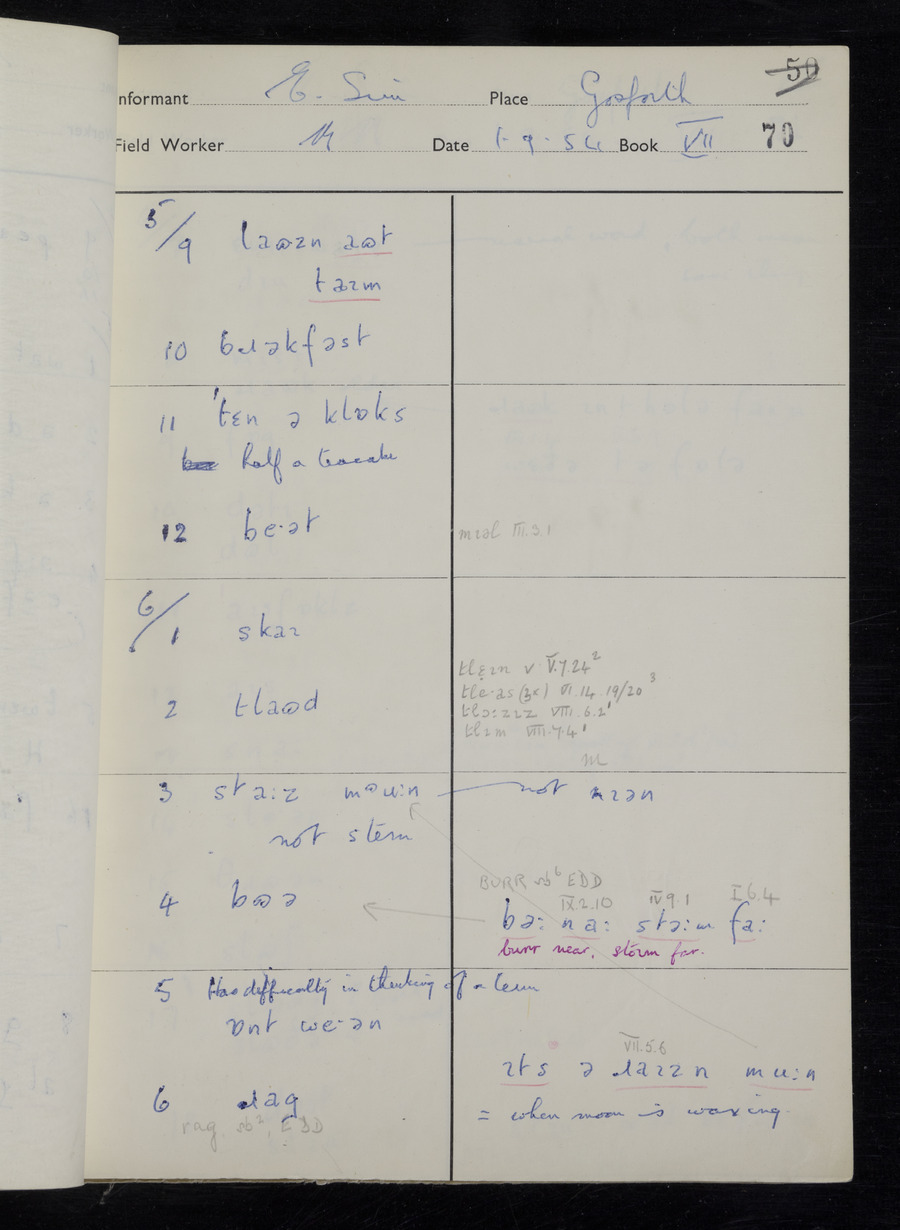 Informant E. Sim Place Gosforth 50
Field Worker Date 1·9·54 Book VII 70
5/9 laʊzn aʊt
tazm
10 bɹəkfəst
11 'tɛn ə klɒks
half a teacake
12 be·ət
mɪəl III.3.1
6/1 skaɪ
tlɛɪn v V.7.24²
2 tlaʊd
tle·as (3x) VI.14.19/20³
tlɔ:zɪz VIII.6.2¹
tlɪm VIII.7.4¹
3 sta:z mᵊu:n not nɪən
not stɛm
BURR sb⁶ EDD
IX.2.10 IV.9.1 I.6.4
4 bʊə bə: na: stə:m fa:
burr near, storm far.
5 Has difficulty in thinking of a term
ɒnt we·ən
VII.5.6
ɪts ə ɹaɪzɪn mu:n
6 ɹag = when moon is waxing
rag, sb², EDD